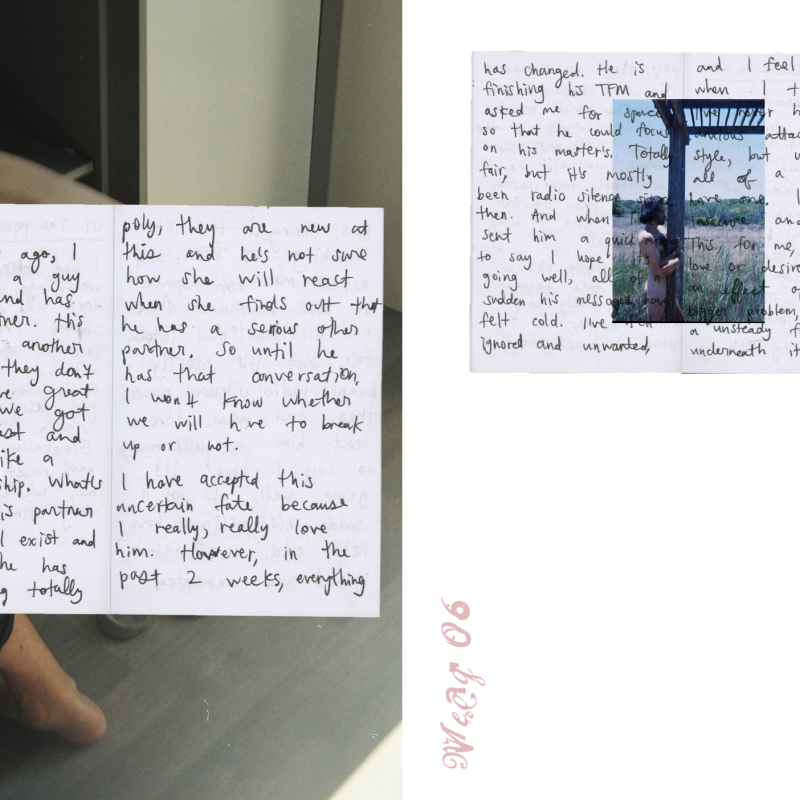 ago, I
a guy
nd has
tner. this
another
they don't
ve great
we got
and
ike a
ship. What's
is partner
I exist and
he has
g totally
poly, they are new at
this and he's not sure
how she will react
when she finds out that
he has a serious other
partner. So until he
has that conversation,
I won't know whether
we will have to break
up or not.
I have accepted this
uncertain fate because
I really, really love
him. However, in the
past 2 weeks, everything
has changed. He is
finishing his TFM and
asked me for space
so that he could focus
on his master's. Totally
fair, but it's mostly
been radio silence since
then. And when I
sent him a quick
to say I hope it's
going well, all of a
sudden his messages have
felt cold. I've felt
ignored and unwanted,
and I feel
when I
I've never h
anxious attac
style, but w
all of a
love one. I
insecure and
This, for me,
love or desire
an effect o
bigger problem,
a unsteady f
underneath it
06